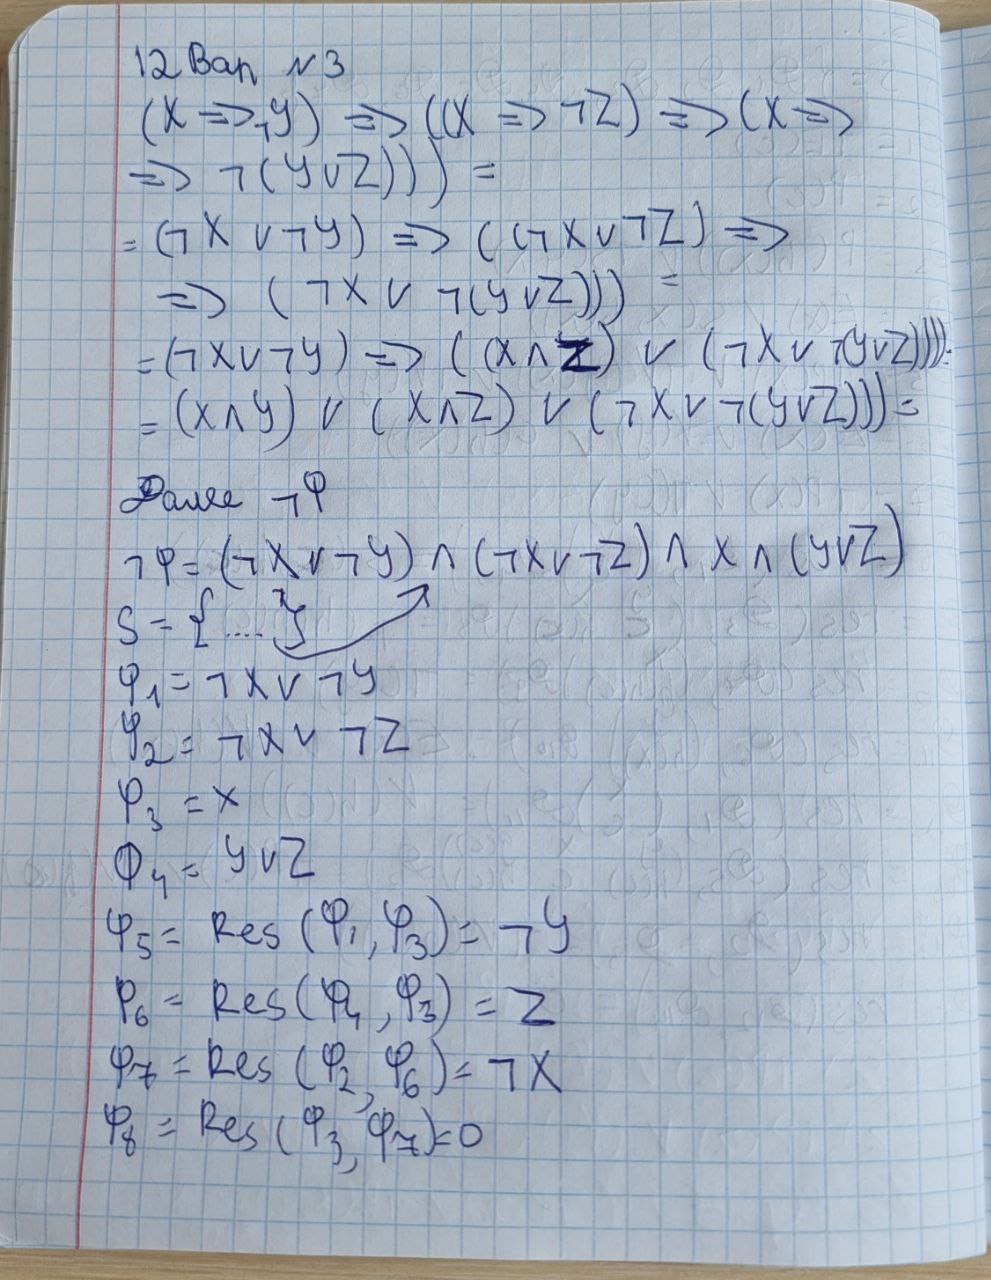 12 Вар №3
(X => ¬Y) => ((X => ¬Z) => (X =>
=> ¬(Y∨Z))) =
= (¬X ∨ ¬Y) => ((¬X ∨ ¬Z) =>
=> (¬X ∨ ¬(Y∨Z))) =
= (¬X ∨ ¬Y) => ((X∧Z) ∨ (¬X ∨ ¬(Y∨Z)))) =
= (X∧Y) ∨ (X∧Z) ∨ (¬X ∨ ¬(Y∨Z))) =
Далее ¬φ
¬φ = (¬X ∨ ¬Y) ∧ (¬X ∨ ¬Z) ∧ X ∧ (Y∨Z)
S = {....}
φ1 = ¬X ∨ ¬Y
φ2 = ¬X ∨ ¬Z
φ3 = X
φ4 = Y∨Z
φ5 = Res (φ1, φ3) = ¬Y
φ6 = Res (φ4, φ3) = Z
φ7 = Res (φ2, φ6) = ¬X
φ8 = Res (φ3, φ7) = 0